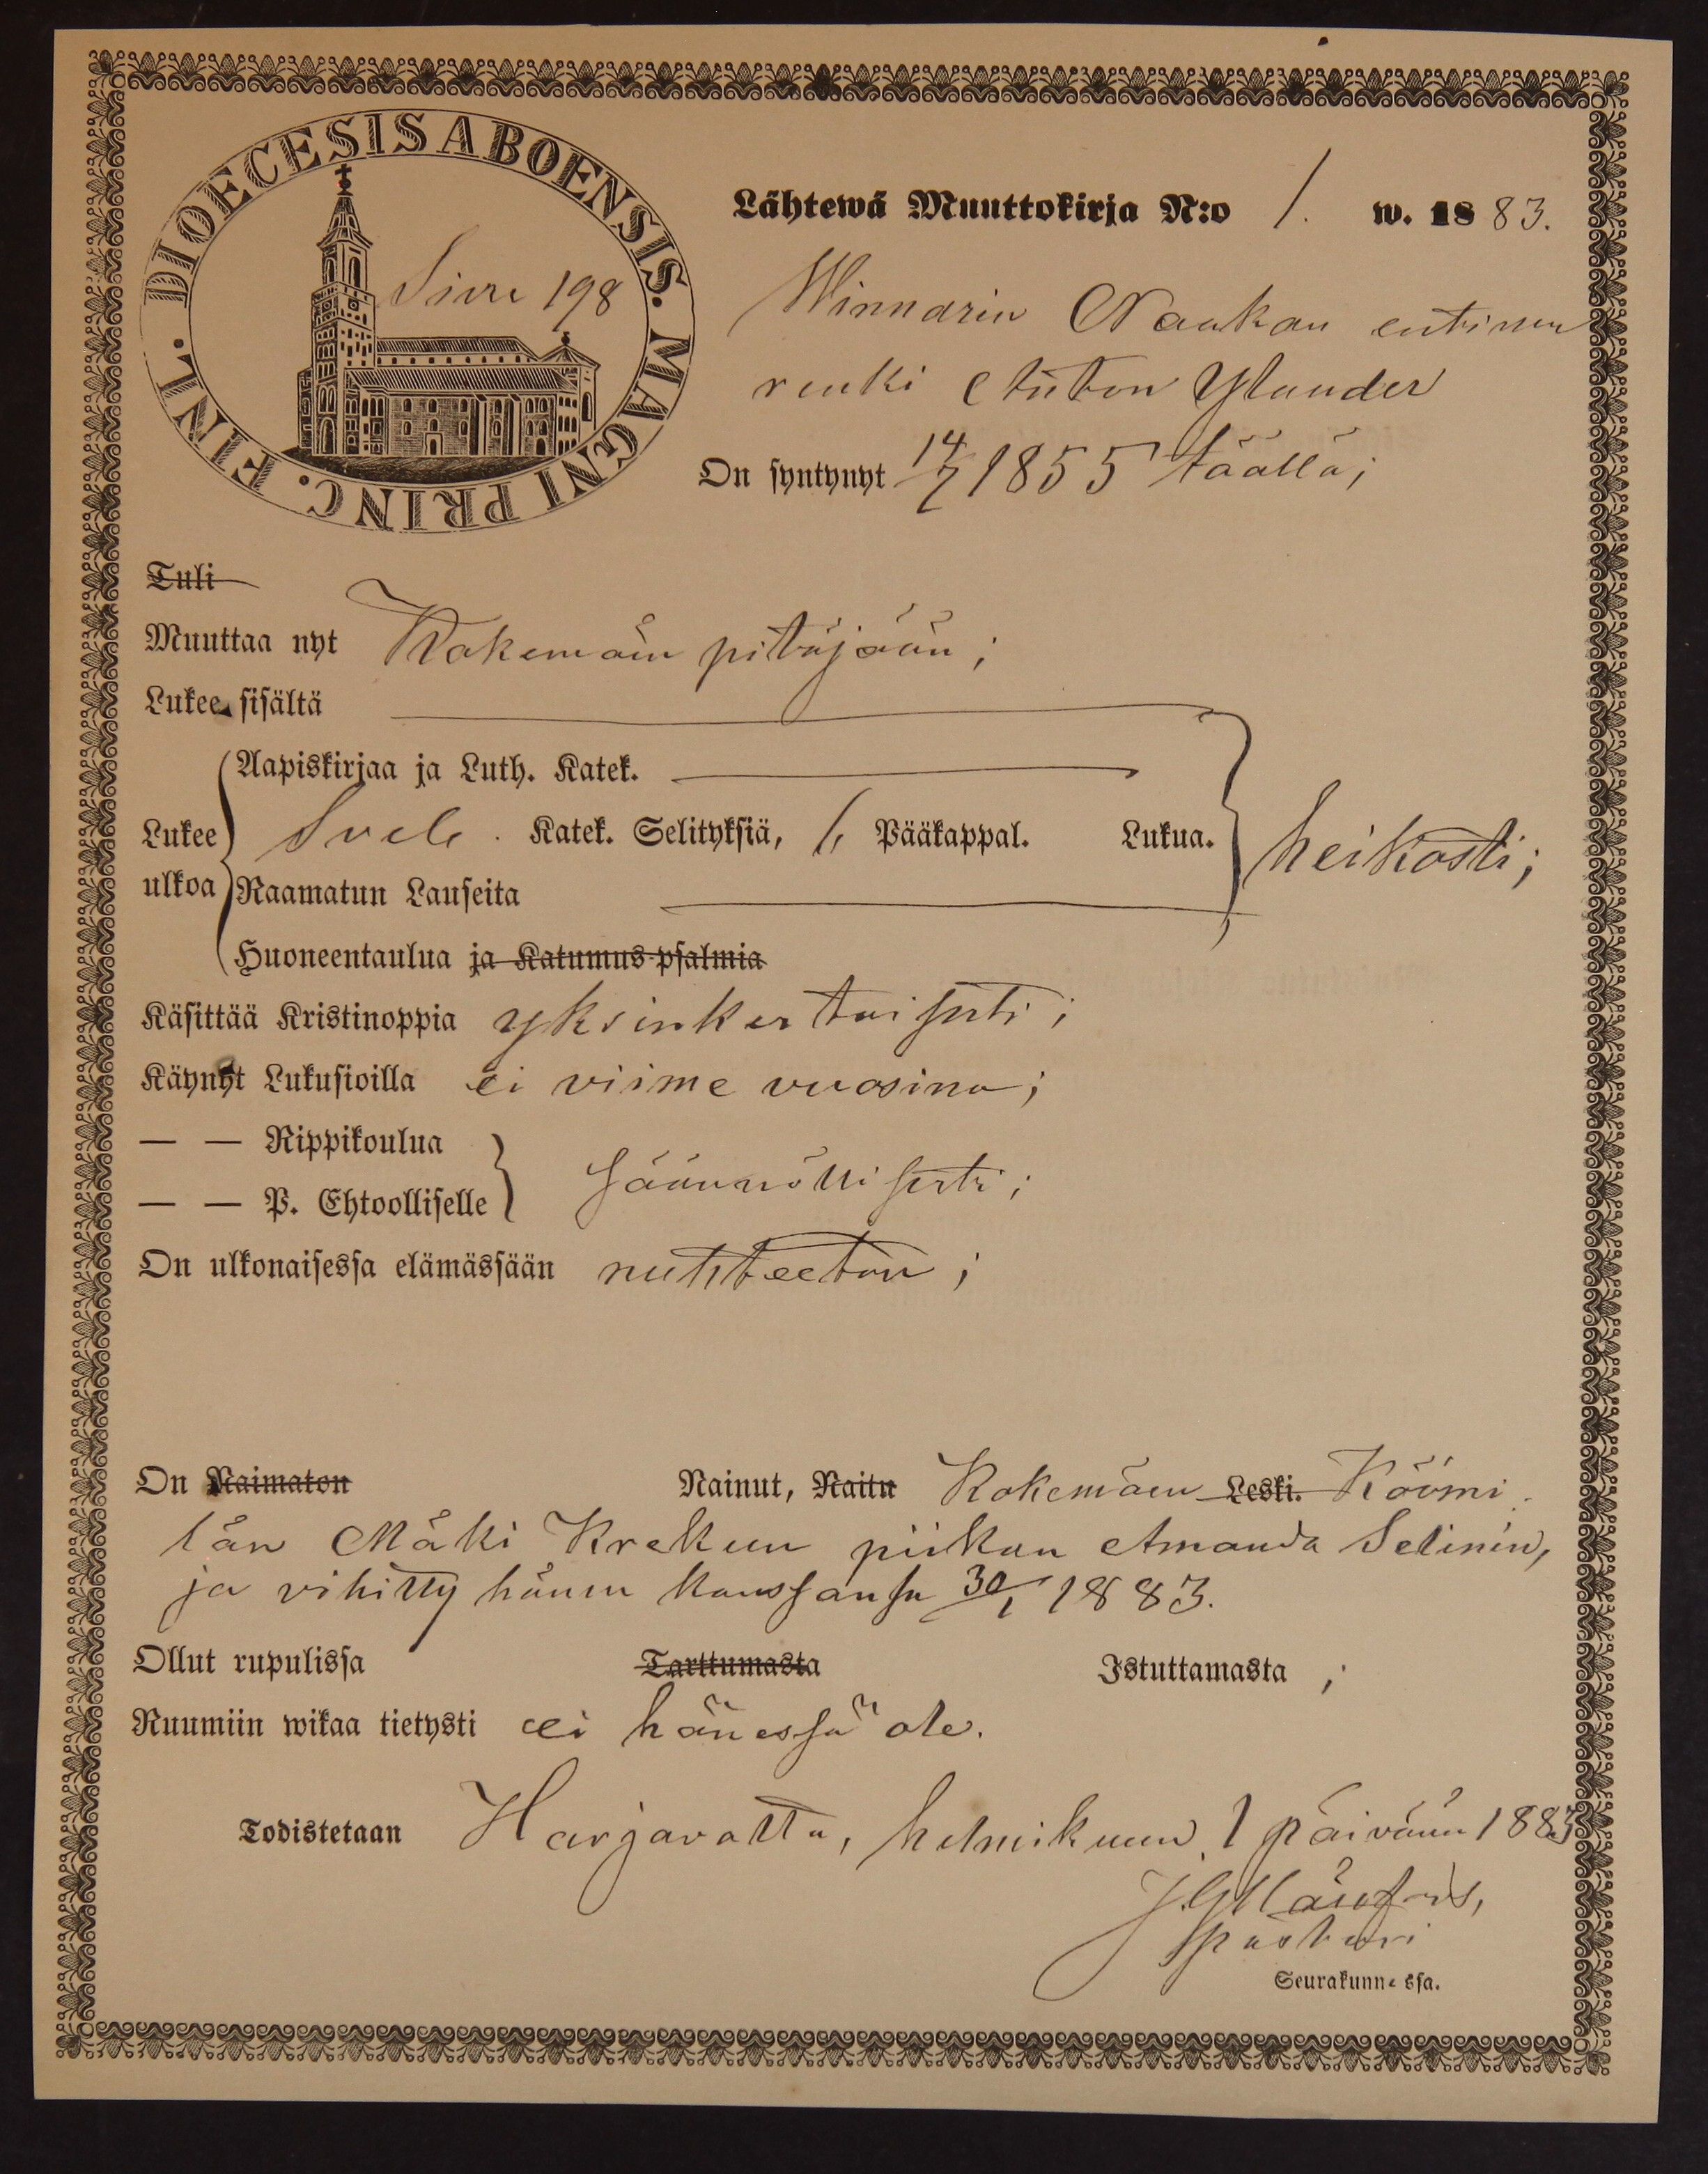 DIOECESIS ABOENSIS. MAGNI PRINC. FINL.
Sivu 198
Lähtewä Muuttokirja N:o 1. w. 1883.
Winnarin Naukan entinen
renki Anton Ylander
On syntynyt 14/7 1855 täällä;
Tuli
Muuttaa nyt Kokemäen pitäjään;
Lukee sisältä
Aapiskirjaa ja Luth. Katek.
Lukee Svel. Katek. Selityksiä, 1, Pääkappal. Lukua. heikosti;
ulkoa Raamatun Lauseita
Huoneentaulua ja Katumus-psalmia
Käsittää Kristinoppia yksinkertaisesti;
Käynyt Lukusioilla ei viime vuosina;
— — Rippikoulua
säännöllisesti;
— — P. Ehtoolliselle
On ulkonaisessa elämässään nuhteeton;
On Naimaton Nainut, Naitu Kokemäen Leski. Köömi
län Mäki Krekun piikan Amanda Selinin,
ja vihitty hänen kanssansa 30/1 1883.
Ollut rupulissa Tarttumasta Istuttamasta ;
Ruumiin wikaa tietysti ei hänessä ole.
Todistetaan Harjavalta, helmikuun 1 päivänä 1883
pastori
Seurakunnassa.